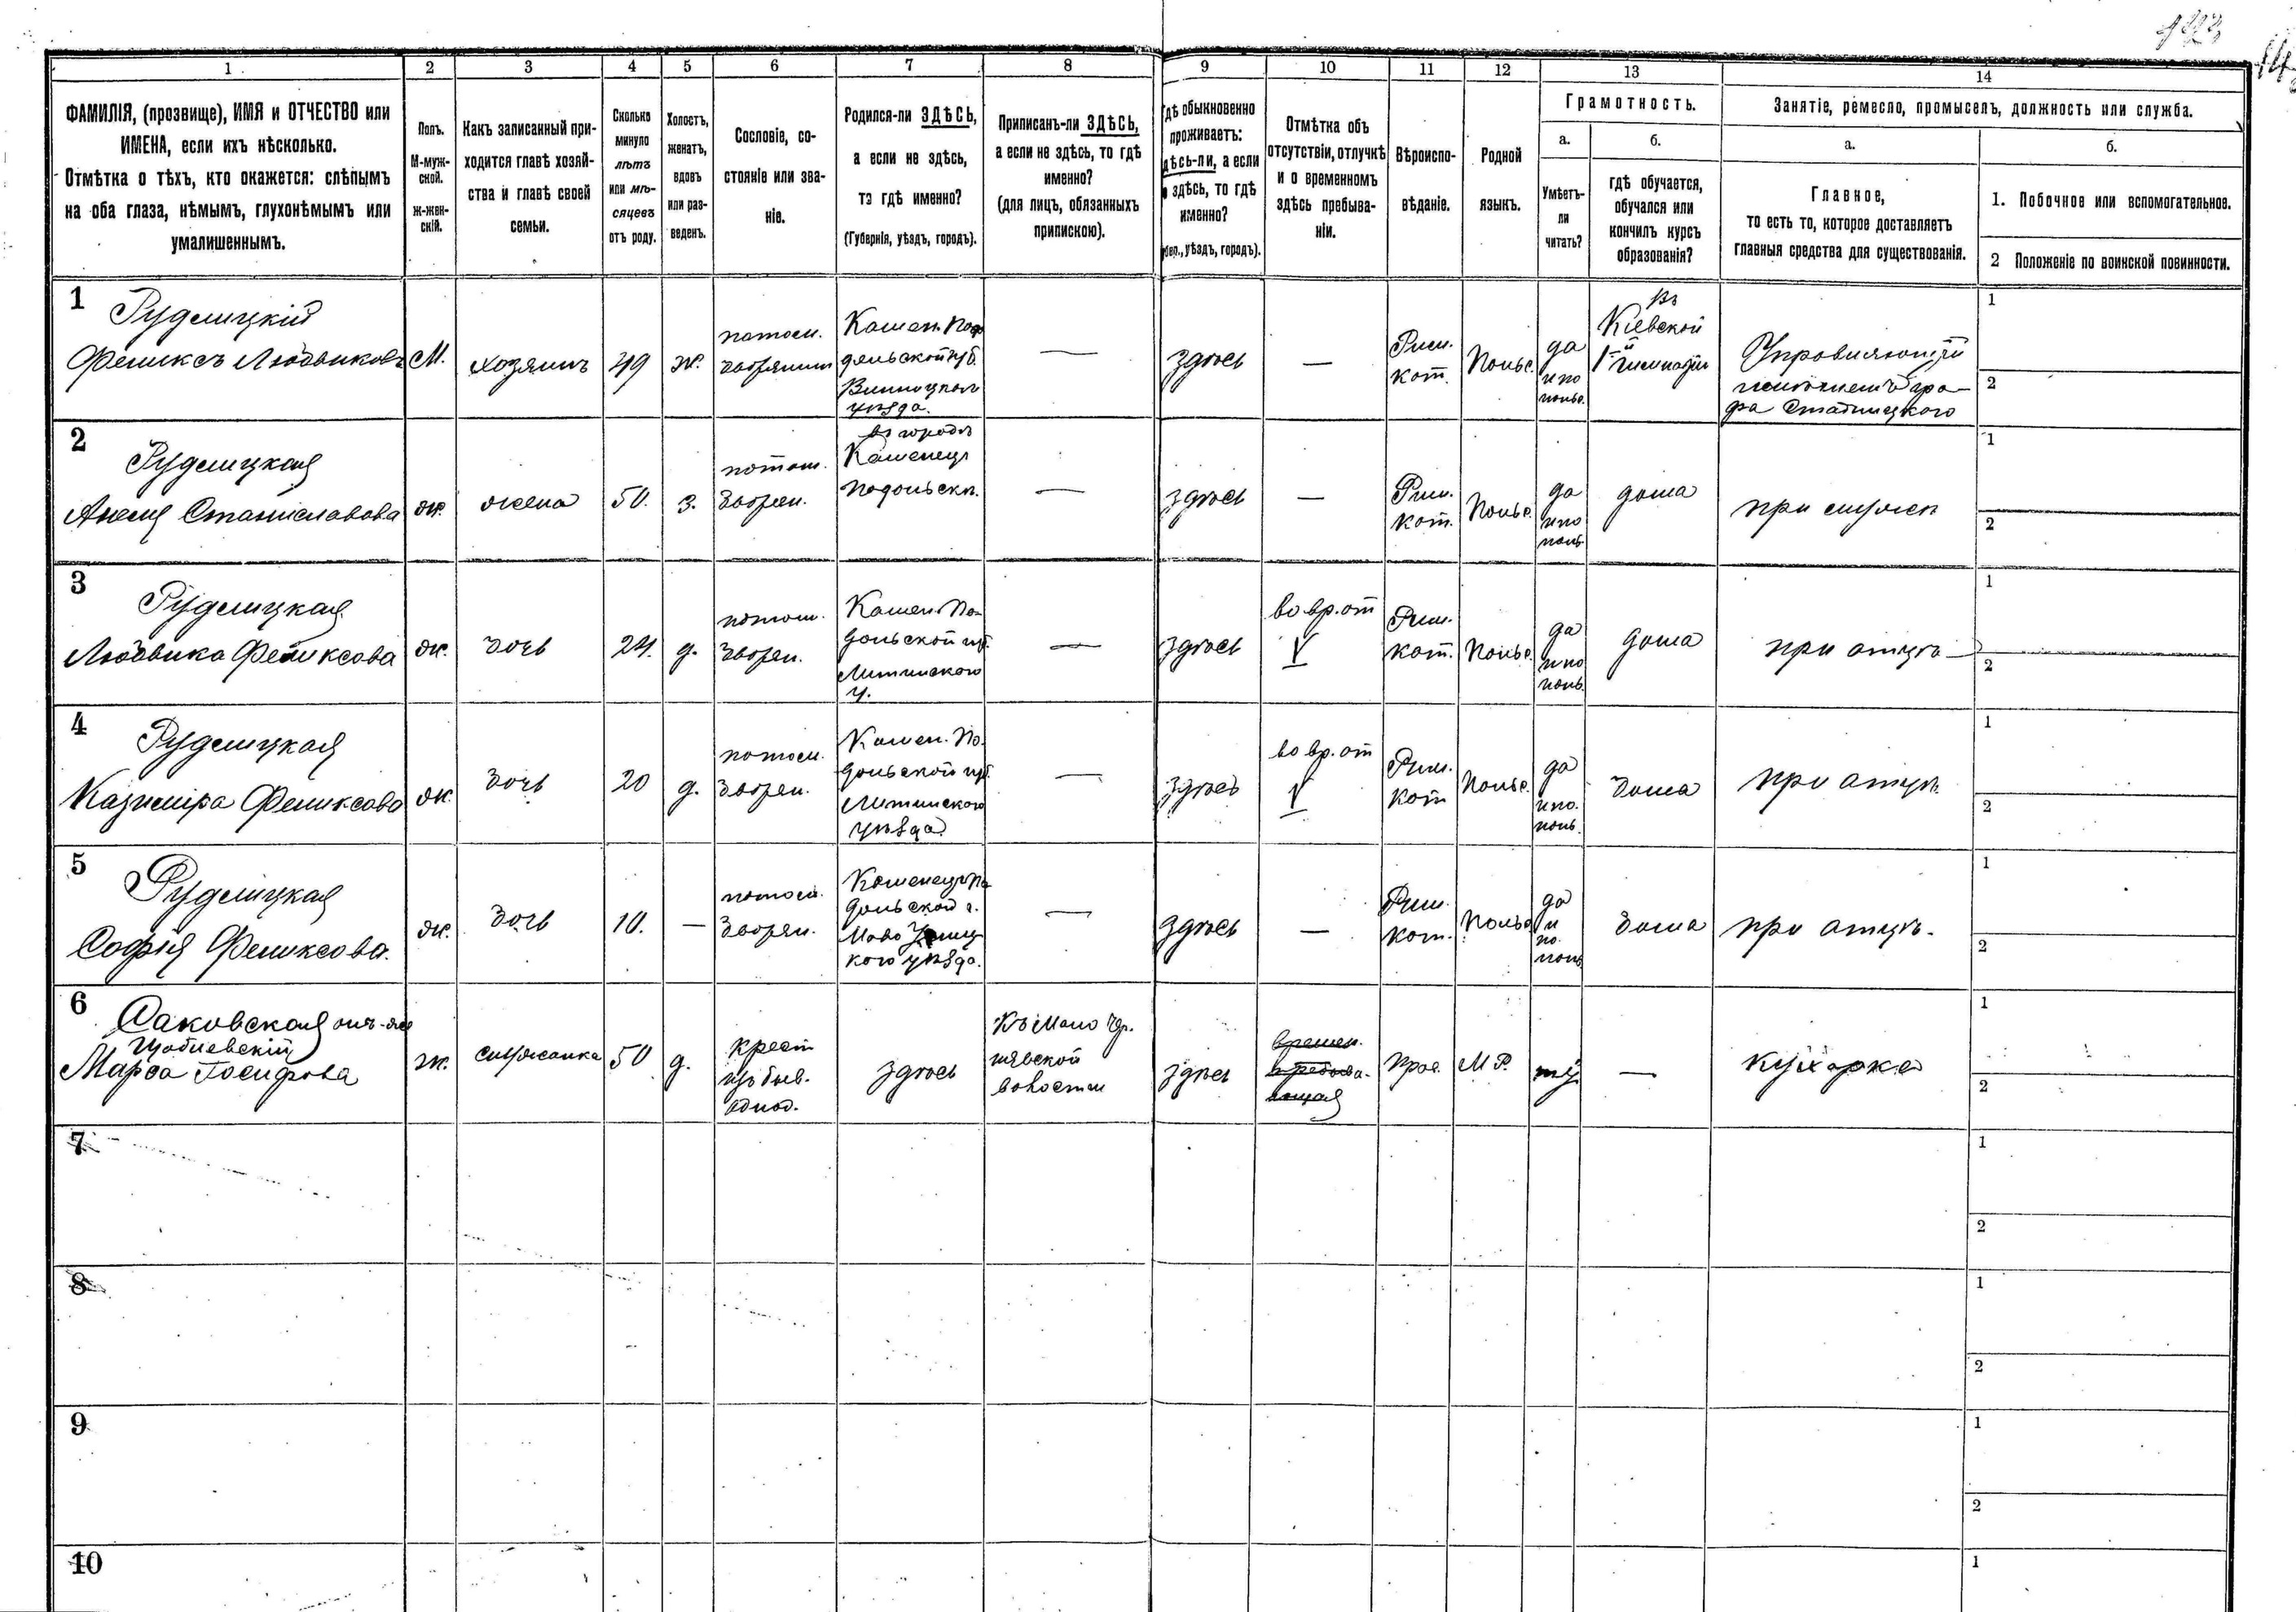 1 2 3 4 5 6 7 8 9 10 11 12 13 14
ФАМИЛІЯ, (прозвище), ИМЯ и ОТЧЕСТВО или
ИМЕНА, если ихъ нѣсколько.
Отмѣтка о тѣхъ, кто окажется: слѣпымъ
на оба глаза, нѣмымъ, глухонѣмымъ или
умалишеннымъ.
Полъ.
М-муж-
ской.
ж-жен-
скій.
Какъ записанный при-
ходится главѣ хозяй-
ства и главѣ своей
семьи.
Сколько
минуло
лѣтъ
или мѣ-
сяцевъ
отъ роду.
Холостъ,
женатъ,
вдовъ
или раз-
веденъ.
Сословіе, со-
стояніе или зва-
ніе.
Родился-ли ЗДѢСЬ,
а если не здѣсь,
то гдѣ именно?
(Губернія, уѣздъ, городъ).
Приписанъ-ли ЗДѢСЬ,
а если не здѣсь, то гдѣ
именно?
(для лицъ, обязанныхъ
припискою).
гдѣ обыкновенно
проживаетъ:
дѣсь-ли, а если
здѣсь, то гдѣ
именно?
уѣздъ, городъ).
Отмѣтка объ
отсутствіи, отлучкѣ
и о временномъ
здѣсь пребыва-
ніи.
Вѣроиспо-
вѣданіе.
Родной
языкъ.
Грамотность.
а.
Умѣетъ-
ли
читать?
б.
гдѣ обучается,
обучался или
кончилъ курсъ
образованія?
Занятіе, ремесло, промыселъ, должность или служба.
а.
Главное,
то есть то, которое доставляетъ
главныя средства для существованія.
б.
1. Побочное или вспомогательное.
2 Положеніе по воинской повинности.
1
Рудницкій
Феликсъ Людвиковъ
М.
хозяинъ
49
ж.
потом.
дворянин
Камен. Под
дольской губ.
Винницкаго
уѣзда.
—
здѣсь
—
Рим.
кат.
Польс.
да
и по
польс.
въ
Кіевской
1й гимназіи
Управляющій
имѣніемъ гра-
фа
1
2
2
Рудницкая
Анеля Станиславова
ж.
жена
50.
з.
потом.
дворян.
въ городѣ
Каменецъ
Подольск.
—
здѣсь
—
Рим.
кат.
Польс.
да
и по
поль.
дома
при мужѣ
1
2
3
Рудницкая
Людвика Феликсова
ж.
дочь
24.
д.
потом.
дворян.
Камен. По-
дольской губ.
Литинского
у.
—
здѣсь
во вр. от
V
Рим.
кат.
Польс.
да
и по
поль.
дома
при отцѣ
1
2
4
Рудницкая
Казимира Феликсова
ж.
дочь
20
д.
потом.
дворян.
Камен. По-
дольской губ.
Литинского
уѣзда.
—
здѣсь
во вр. от
V
Рим.
кат
Польс.
да
и по.
поль.
дома
при отцѣ.
1
2
5
Рудницкая
Софія Феликсова.
ж.
дочь
10.
—
потом.
дворян.
Каменецъ По
дольской г.
Ново Ушиц
кого уѣзда.
—
здѣсь
—
Рим.
кат.
Польс
да
и
по.
поль
дома
при отцѣ.
1
2
6
Саковская
Марѳа Іосифова
ж.
служанка
50
д.
крест
изъ быв.
однод.
здѣсь
волости
здѣсь
времен.
пребыва-
ющая
Прав.
М. Р.
—
кухарка
1
2
7
1
2
8
1
2
9
1
2
10
1